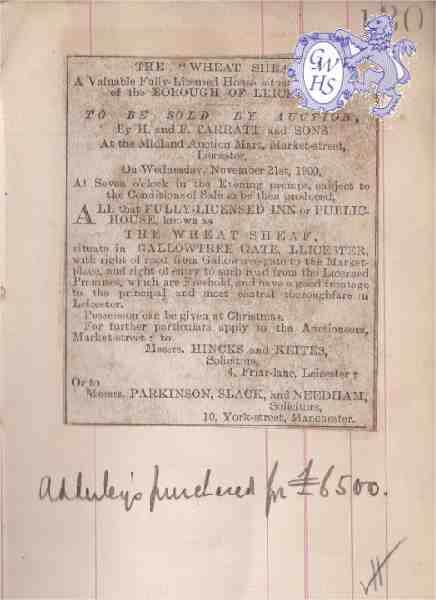 120
THE "WHEAT SHEA
A Valuable Fully-Licensed House
of the BOROUGH OF LEICE
TO BE SOLD BY AUCTION,
By H. and F. TARRATT and SONS
At the Midland Auction Mart, Market-street,
Leicester,
On Wednesday, November 21st, 1900,
At Seven o'clock in the Evening prompt, subject to
the Conditions of Sale to be then produced,
ALL that FULLY-LICENSED INN or PUBLIC-
HOUSE, known as
THE WHEAT SHEAF,
situate in GALLOWTREE GATE, LEICESTER,
with right of road from Gallowtree-gate to the Market-
place, and right of entry to such road from the Licensed
Premises, which are Freehold, and have a good frontage
to the principal and most central thoroughfare in
Leicester.
Possession can be given at Christmas.
For further particulars apply to the Auctioneers,
Market-street; to
Messrs. HINCKS and
Solicitors,
4, Friar-lane, Leicester;
Or to
Messrs. PARKINSON, SLACK, and NEEDHAM,
Solicitors,
10, York-street, Manchester.
GW
HS
Adderley's purchased for £6500.